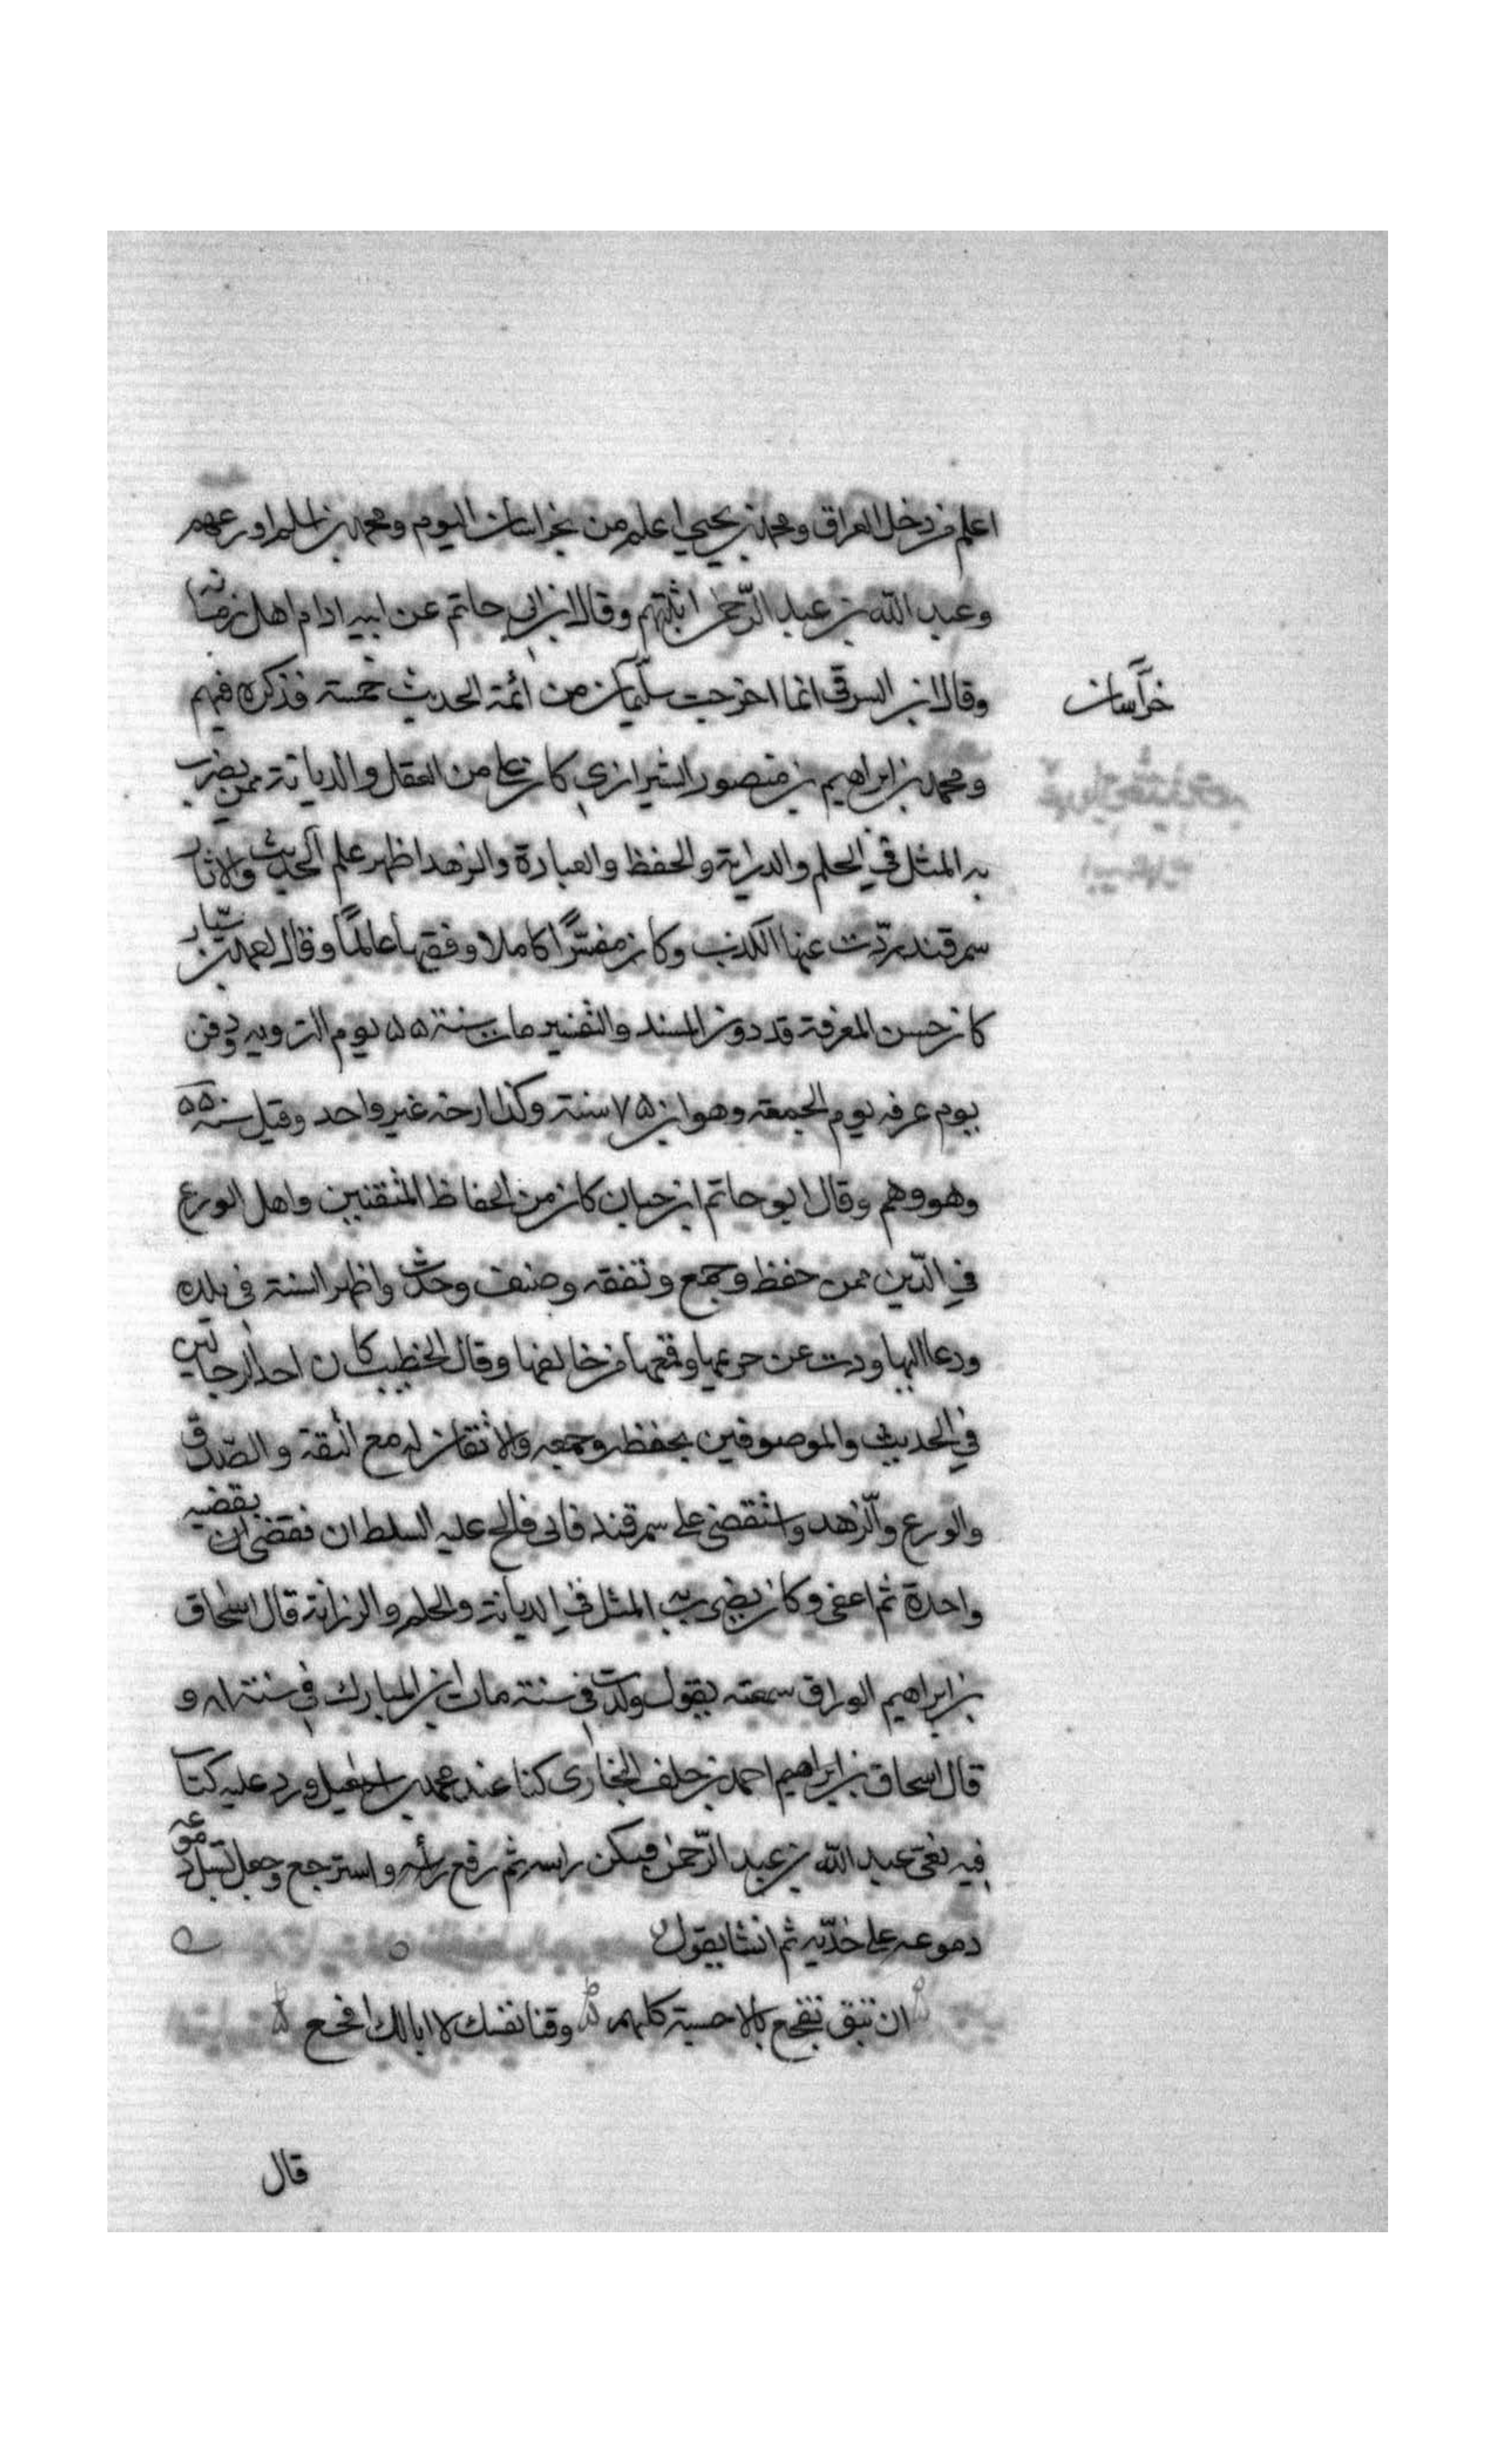 اعلم من دخل العراق ومحمد بن يحيي اعلم من بخراسان اليوم ومحمد بن اسلم اورعهم
وعبد الله بن عبد الرّحمن اثبتهم وقال ابن ابي حاتم عن ابيه امام اهل زمانه
خراسان
وقال ابن السرقي انما اخرجت سليمان من ائمة الحديث خمسة فذكره فيهم
ومحمد بن ابراهيم بن منصور الشيرازي كان على من العقل والديانة ممن يضرب
به المثل في الحلم والدراية والحفظ والعبادة والزهد اظهر علم الحديث والاثار
سمرقند بردّت عنها الكذب وكان مفسّرًا كاملا وفقيها عالمًا وقال احمد بن سيّار
كان حسن المعرفة قد دون المسند والتفسير مات سنة ۵۵ يوم الترويه ودفن
يوم عرفه يوم الجمعة وهو ابن ۷۵ سنة وكذا ارخه غير واحد وقيل سنة ۵۵۰
وهو وهم وقال ابو حاتم ابن حبان كان من الحفاظ المتقنين واهل الورع
في الدّين ممن حفظ وجمع وتفقه وصنف وحدّث واظهر السنة في بلده
ودعا اليها وذب عن حرعها وقمعها من خالفها وقال الخطيب كان احد الرجالين
في الحديث والموصوفين بحفظه وجمعه والاتقان له مع الثقة والصّدق
والورع والزّهد واستقضى على سمرقند فابى فالح عليه السلطان فقضى ان بقضيه
واحدة ثم اعفى وكان يضرب به المثل في الديانة والحلم والرزانة قال اسحاق
بن ابراهيم الوراق سمعته يقول ولدت في سنة مات ابن المبارك في سنة ۸۱ و
قال اسحاق بن ابراهيم احمد بن خلف البخارى كنا عند محمد بن اسمعيل فورد عليه كتاب
فيه نعى عبد الله بن عبد الرّحمن فنكس راسه ثم رفع راسه واسترجع وجعل تسيل دموعه
دموعه على خدّيه ثم انشا يقول
ان تبق تفجع بالاحبة كلهم وفنا نفسك لا ابالك افجع
قال